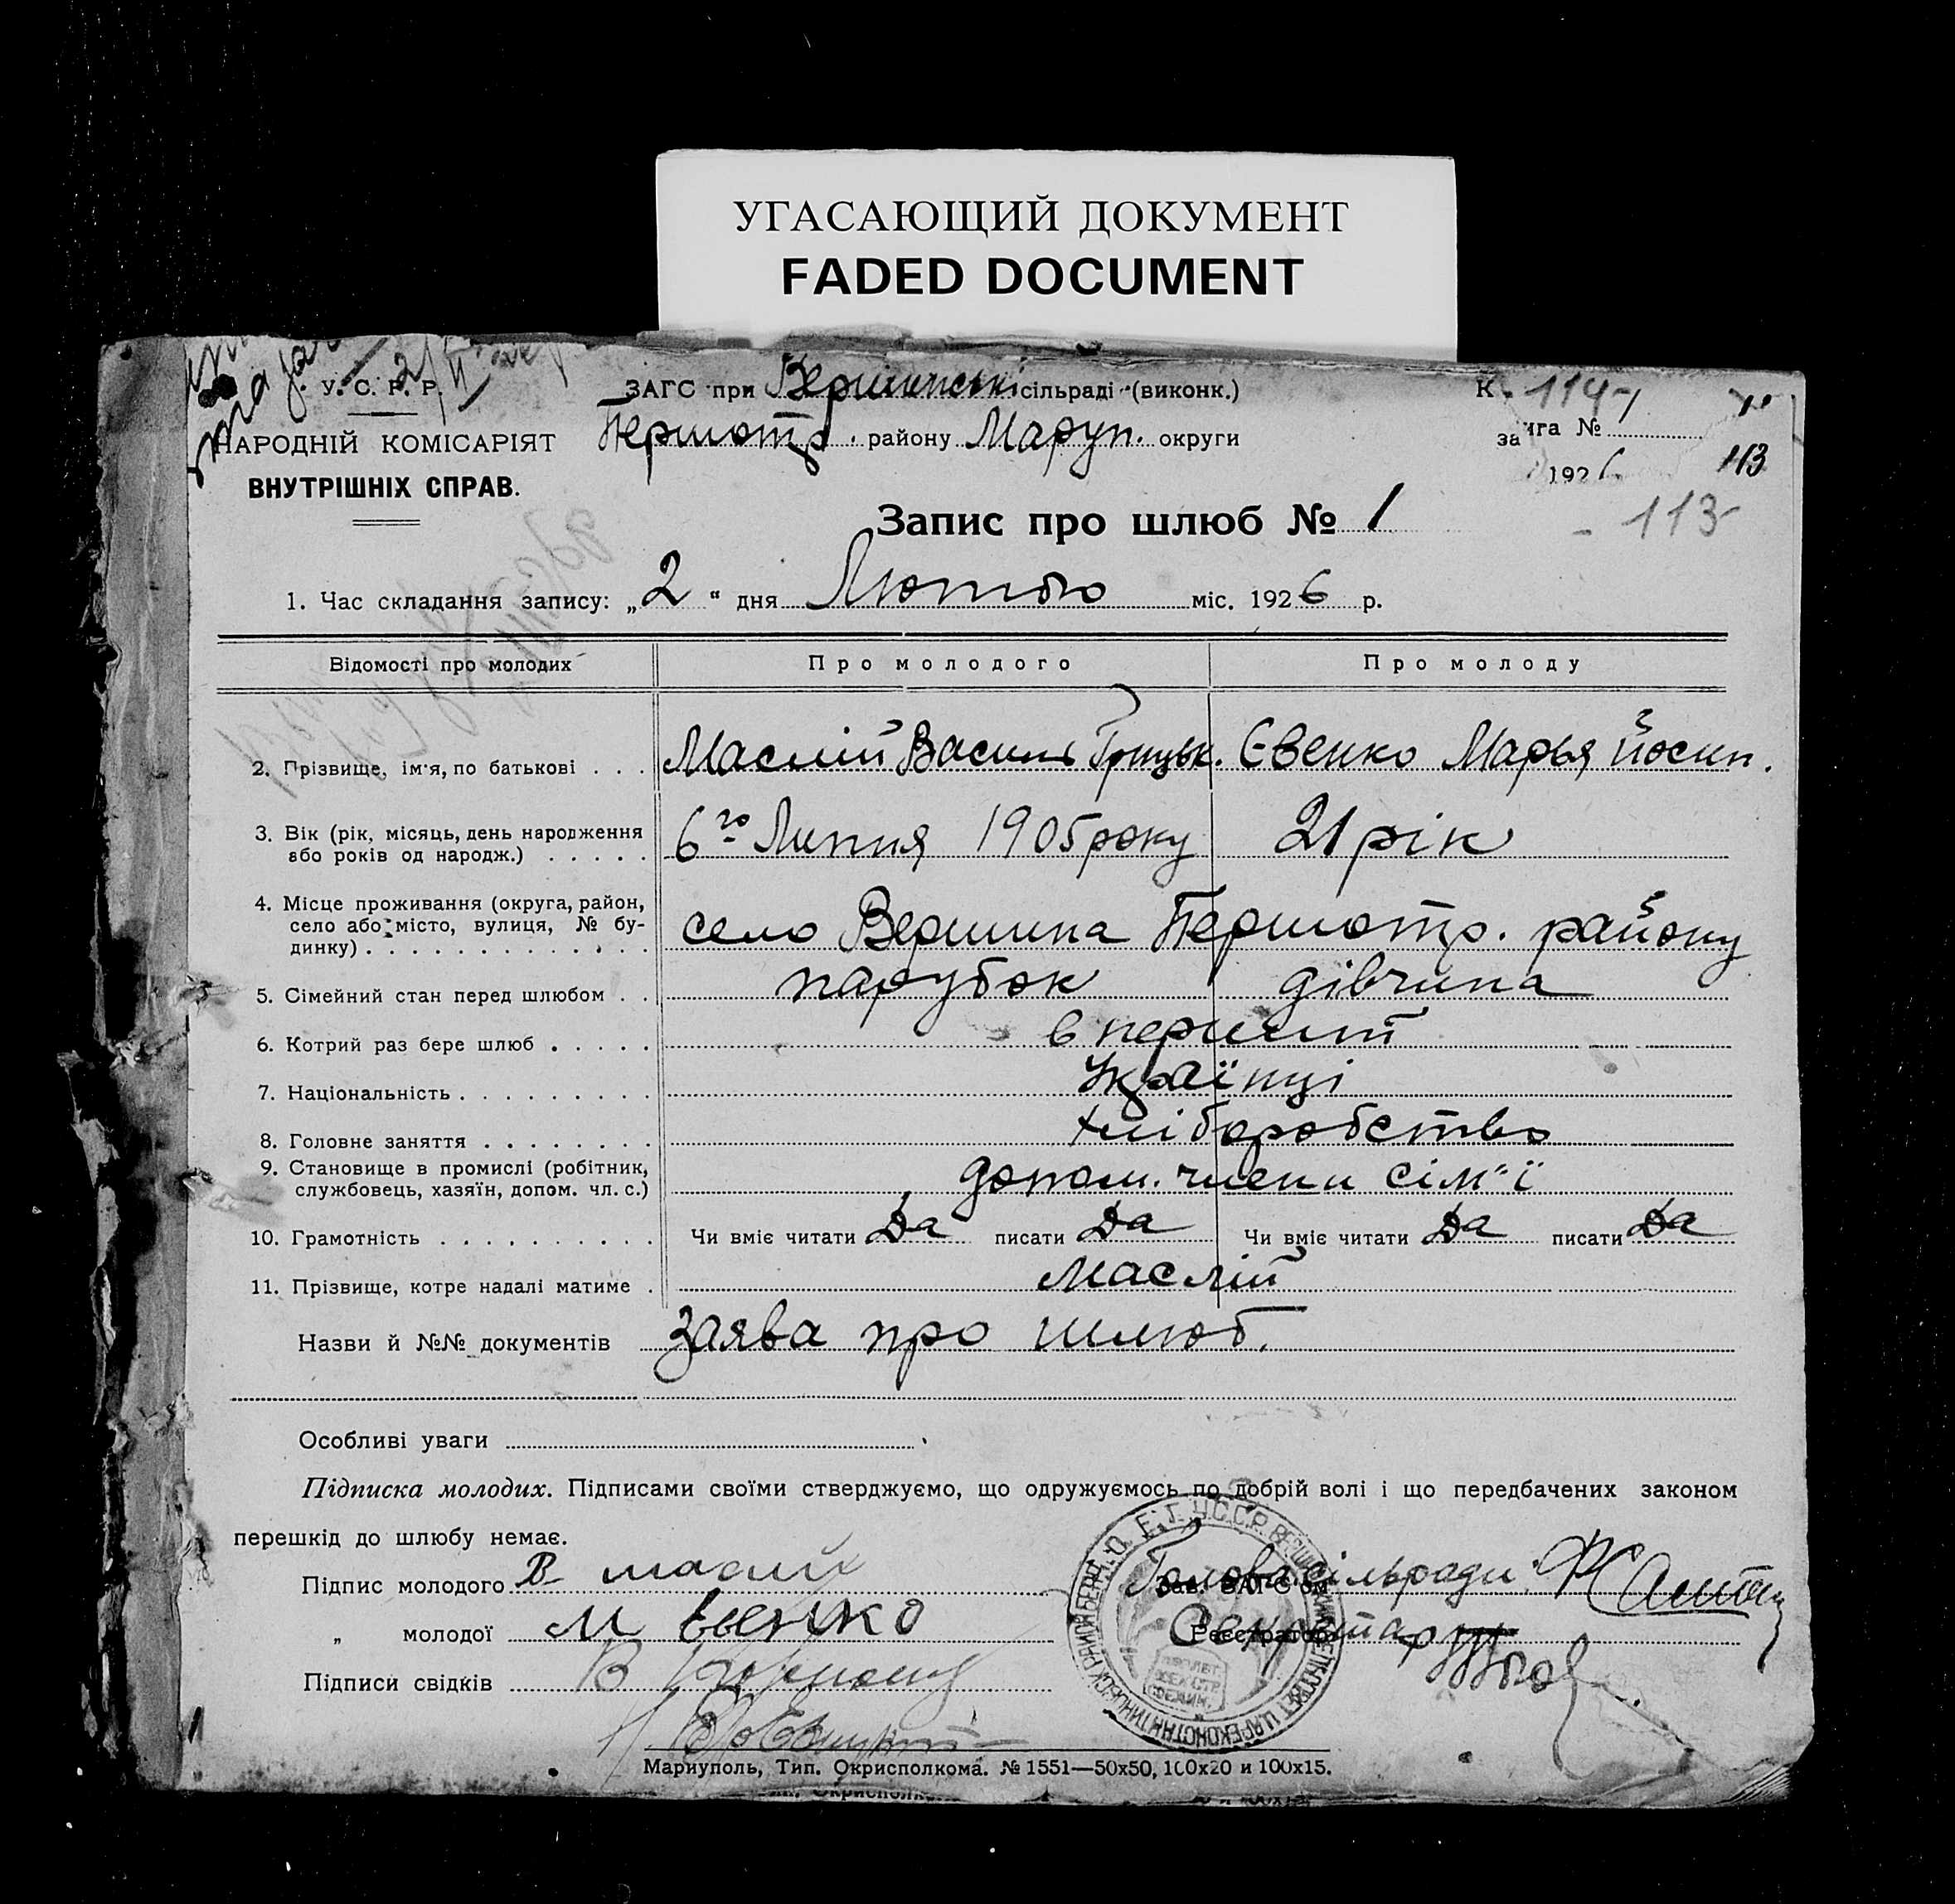 УГАСАЮЩИЙ ДОКУМЕНТ
FADED DOCUMENT
У. С. Р. Р.
НАРОДНІЙ КОМІСАРІЯТ
ВНУТРІШНІХ СПРАВ.
ЗАГС при Вершинські сільраді (виконк.)
Першотр. району Маруп. округи
К 114
ига №
за 1926
113
- 113 -
Запис про шлюб № 1
1. Час складання запису: „2“ дня Лютого міс. 1926 р.
Відомості про молодих Про молодого Про молоду
2. Прізвище, ім'я, по батькові . . . Маслій Василь Грицьк. Євенко Марья Йосип.
3. Вік (рік, місяць, день народження 6го Липня 1905 року 21 рік
або років од народж.) . . . . .
4. Місце проживання (округа, район,
село або місто, вулиця, № бу- село Вершина Першотр. району
динку) . . . . . . . . . . . . .
5. Сімейний стан перед шлюбом . . парубок дівчина
6. Котрий раз бере шлюб . . . . . в перший
7. Національність . . . . . . . . . Українці
8. Головне заняття . . . . . . . . хліборобство
9. Становище в промислі (робітник, допом. члени сім"ї
службовець, хазяїн, допом. чл. с.)
10. Грамотність . . . . . . . . . . Чи вміє читати Да писати Да Чи вміє читати Да писати Да
11. Прізвище, котре надалі матиме . Маслій
Назви й №№ документів Заява про шлюб.
Особливі уваги
Підписка молодих. Підписами своїми стверджуємо, що одружуємось по добрій волі і що передбачених законом
перешкід до шлюбу немає.
Підпис молодого В маслій
Зав. ЗАГС'ом Голова сільради
„ молодої М Евенко
Реєстратор Секретар
Підписи свідків В
Мариуполь, Тип. Окрисполкома. № 1551—50х50, 100х20 и 100х15.